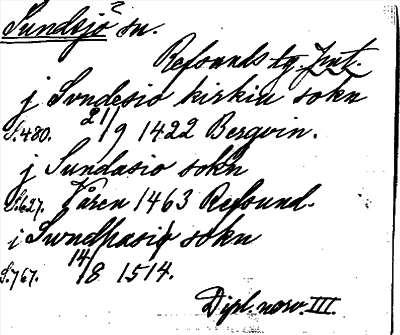 Sundsjö sn.
Refsunds tg. Jmt.
j Svndesio kirkiu sokn
S.480. 21/9 1422 Bergvin.
j Sundasio sokn
S.627. Våren 1463 Refsund.
i Swndhasiø sokn
S.767. 14/8 1514.
Dipl. norv. III.